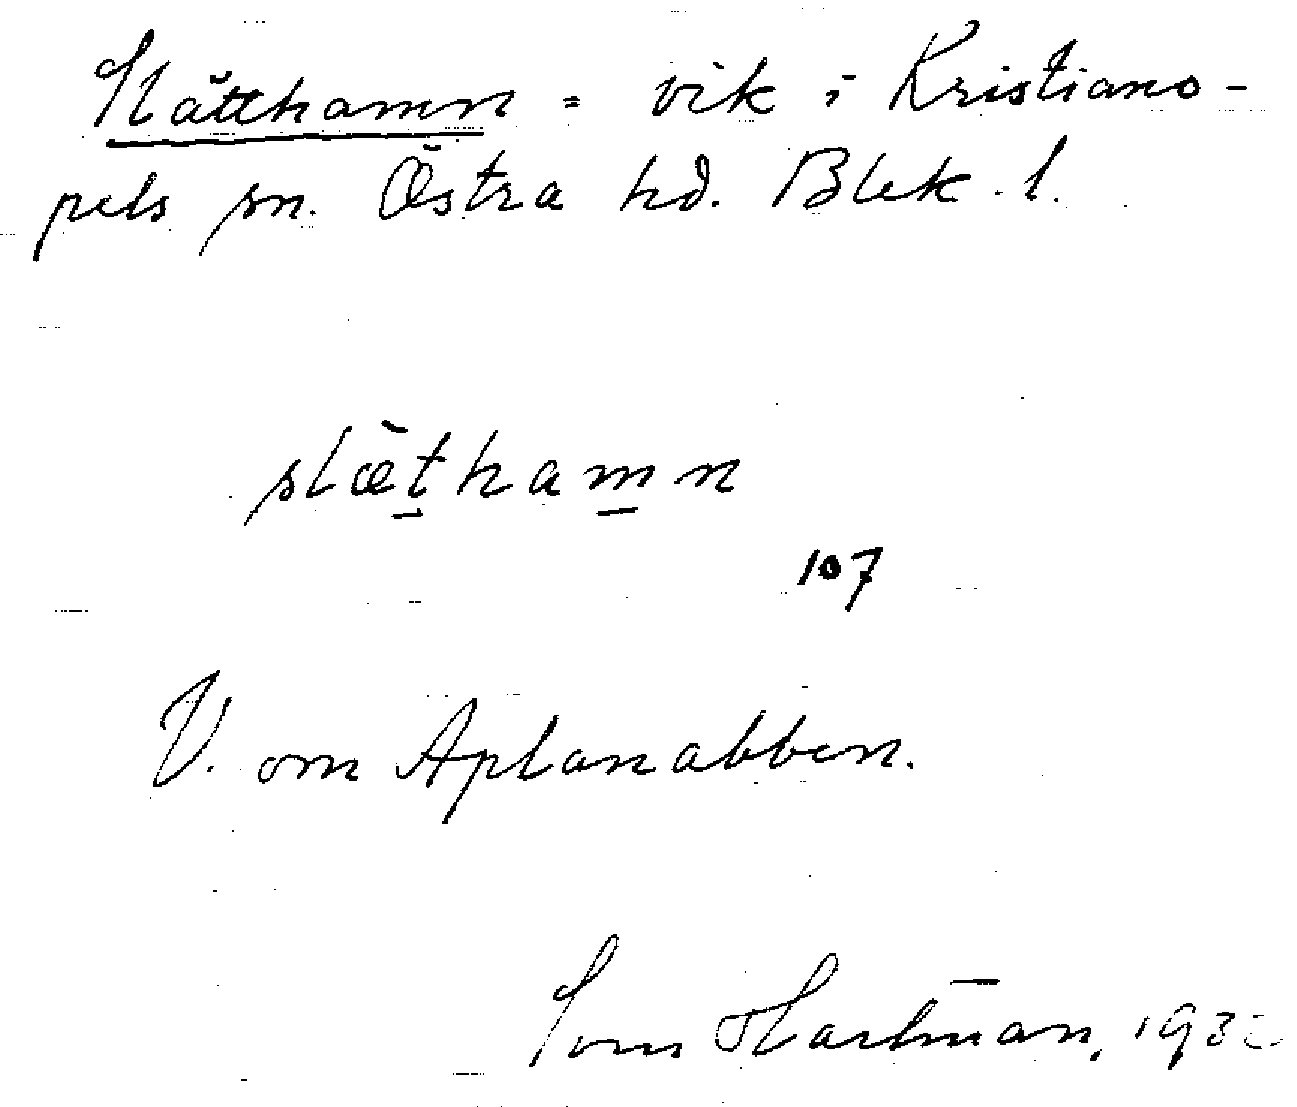 Slätthamn = vik i Kristiano-
pels sn. Östra hd. Blek. l.
slæ̀thamn
107
V. om Aplanabben.
Hartman, 193